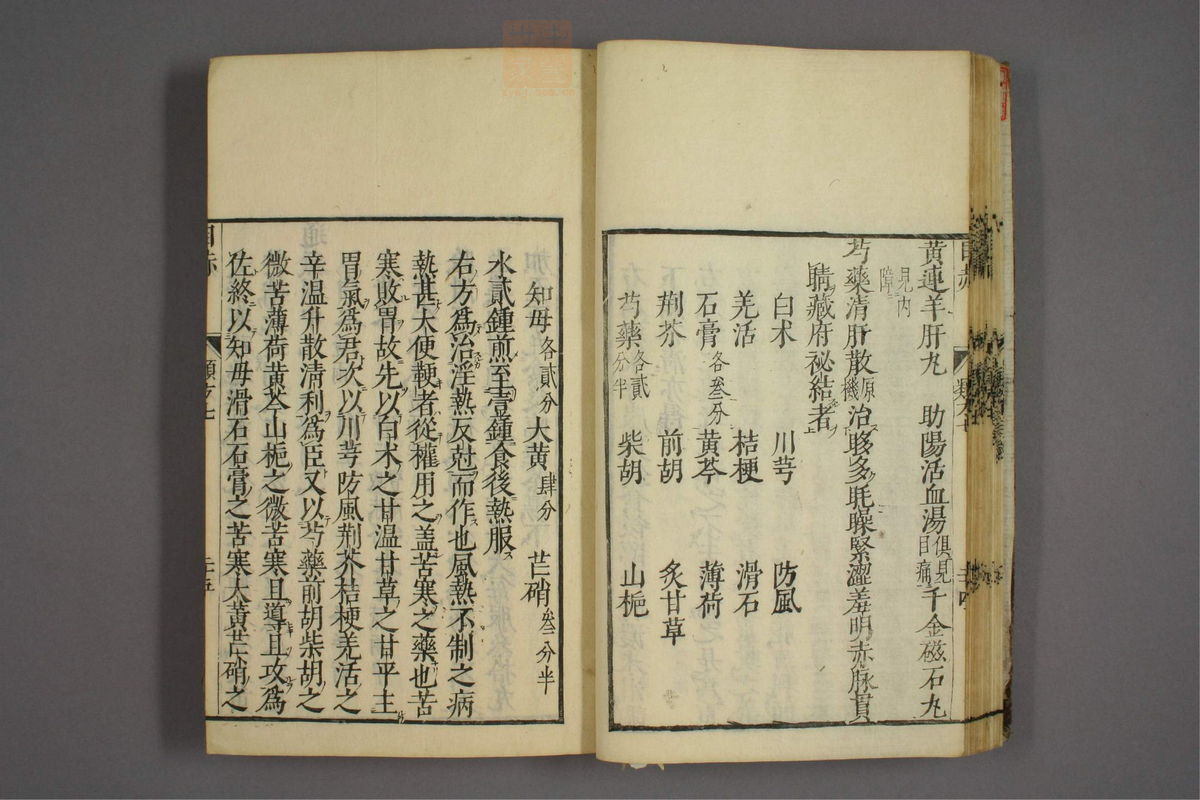 黃連羊肝丸 助陽活血湯俱見目痛千金磁石丸
見內障
芍藥清肝散原機治眵多眊矂緊澀羞明赤脉貫
睛藏府祕結者
白术 川芎 防風
羌活 桔梗 滑石
石膏各叄分 黃芩 薄荷
荆芥 前胡 炙甘草
芍藥各貳分半 柴胡 山梔
知母各貳分 大黃肆分 芒硝叄分半
水貳鍾煎至壹鍾食後熱服
右方爲治淫熱反尅而作也風熱不制之病
熱甚大便鞕者從權用之盖苦寒之藥也苦
寒敗胃故先以白术之甘温甘草之甘平主
胃氣爲君次以川芎防風荆芥桔梗羌活之
辛温升散清利爲臣又以芍藥前胡柴胡之
微苦薄荷黃芩山梔之微苦寒且導且攻爲
佐終以知母滑石石膏之苦寒大黃芒硝之
目赤 類方七 二十五